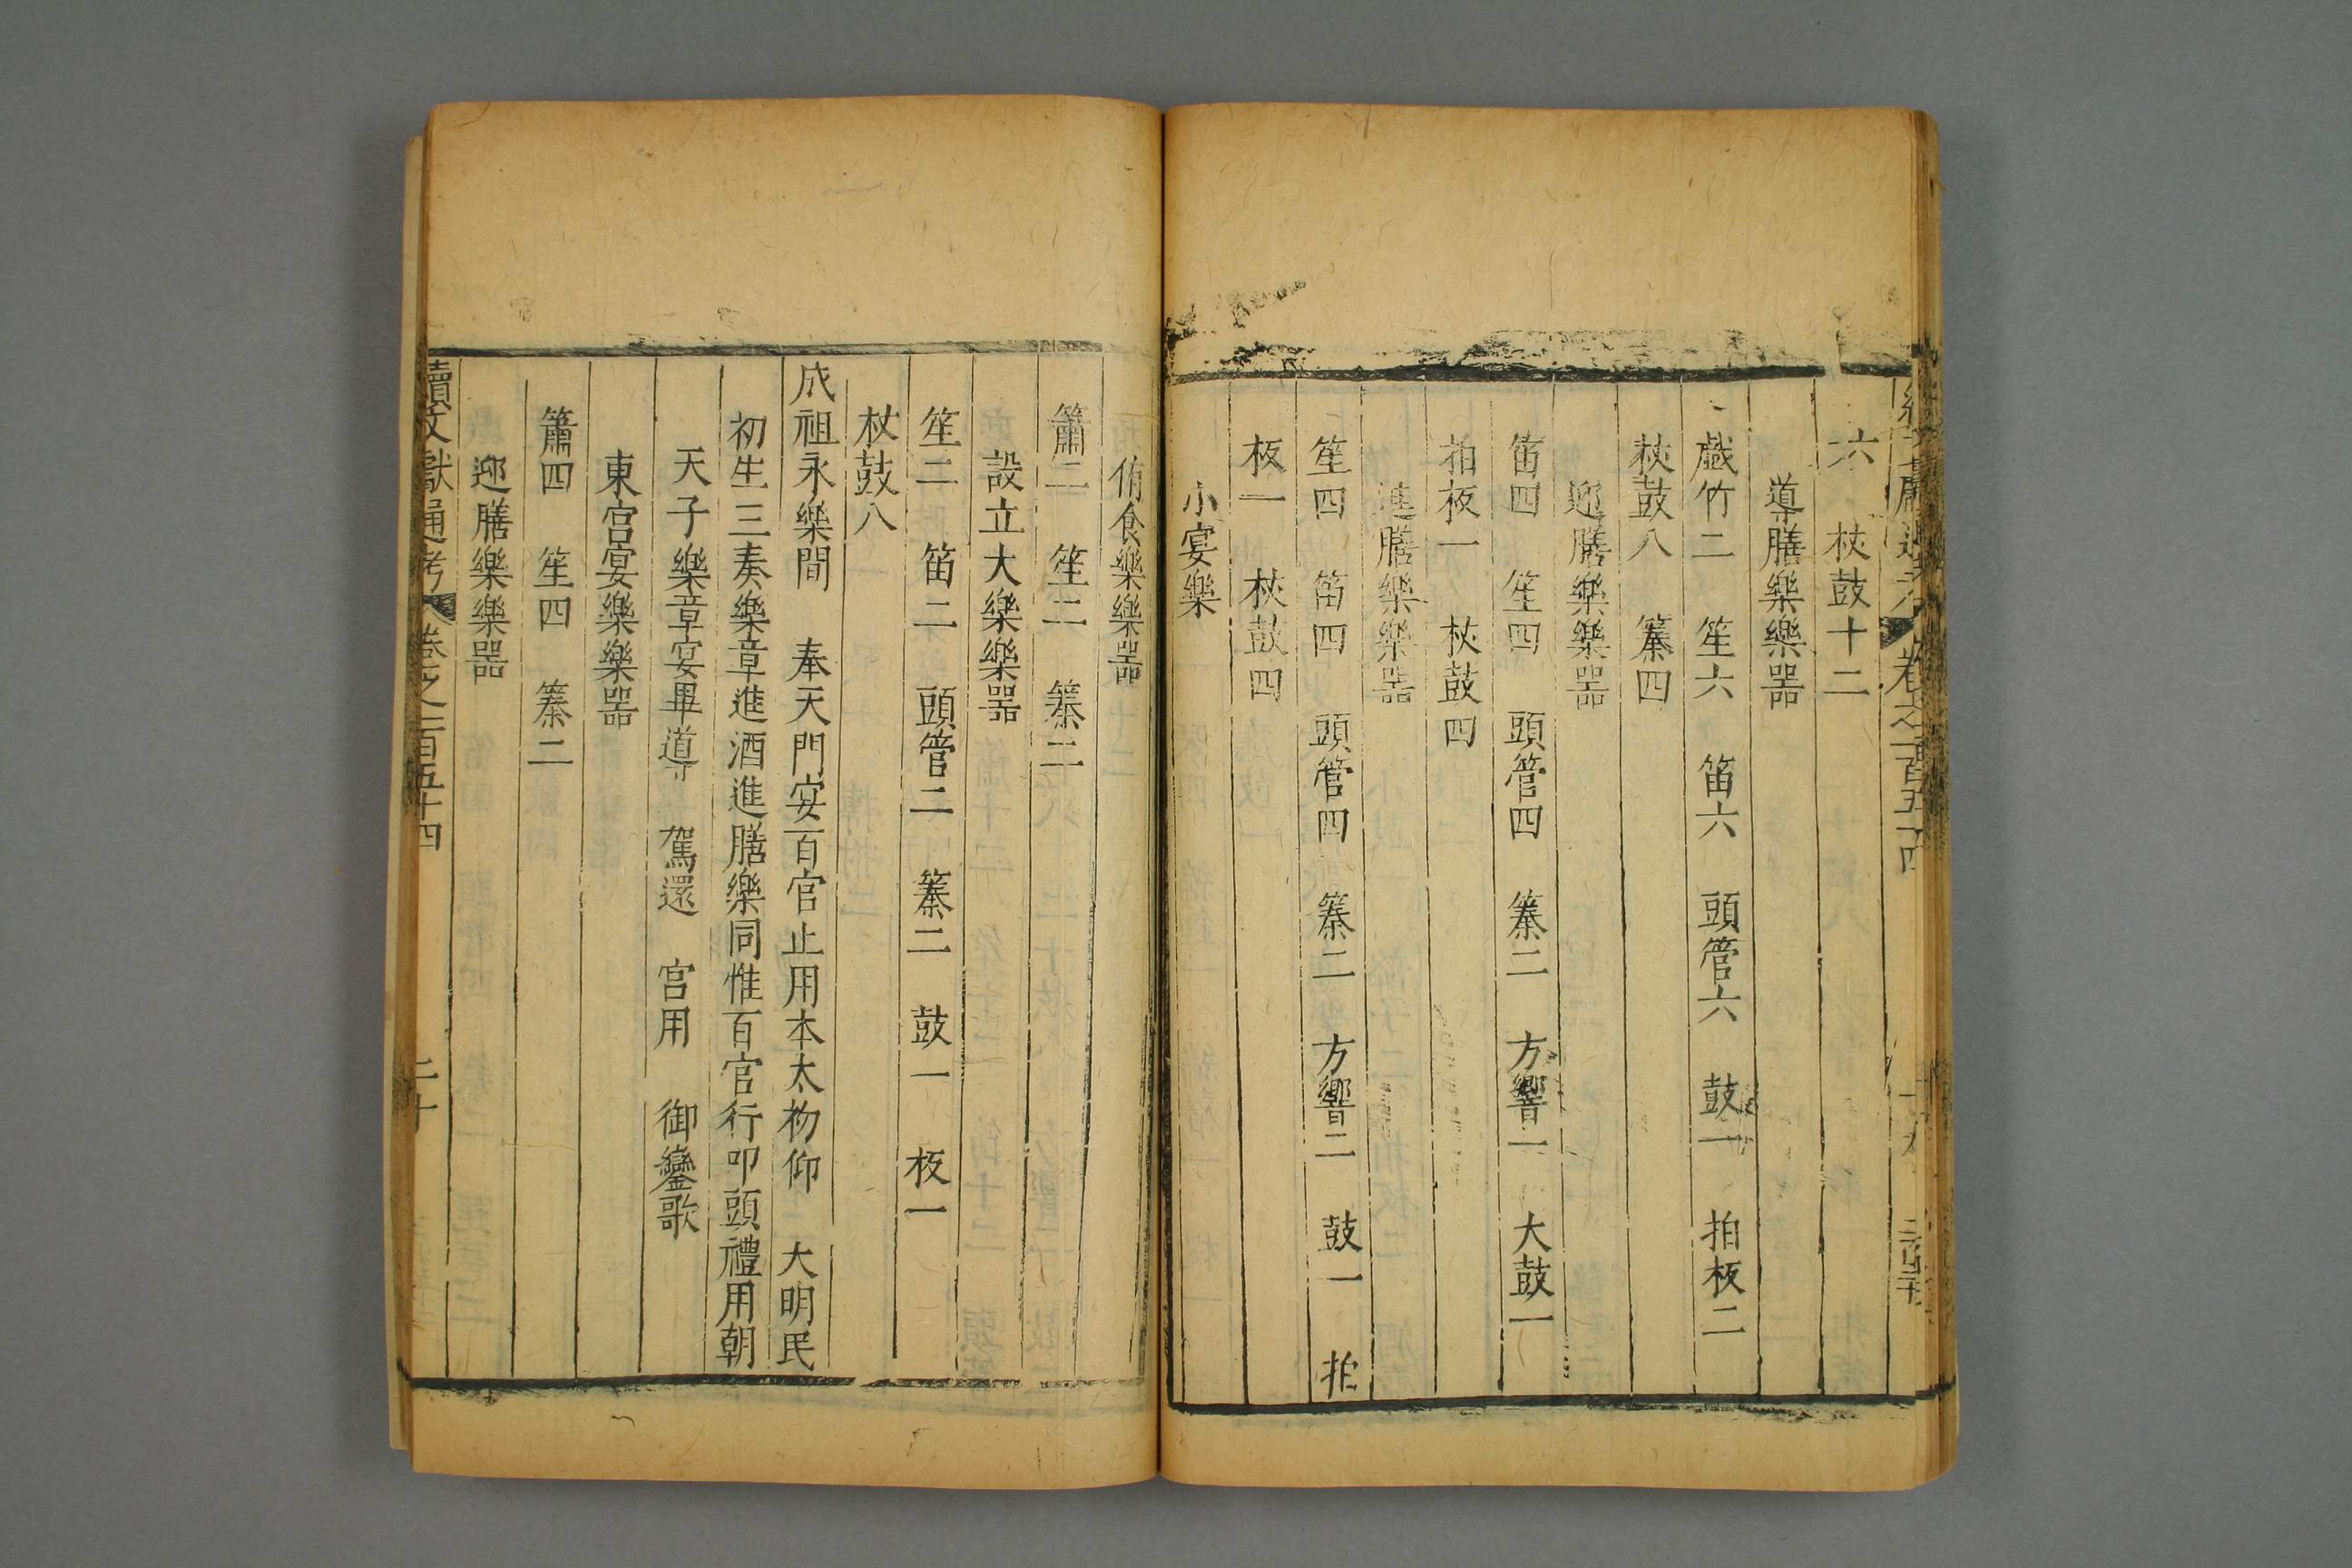 六　杖鼓十二
導膳樂樂器
戲竹二　笙六　笛六　頭管六　鼓一　拍板二
杖鼓八　𥱧四
迎膳樂樂器
笛四　笙四　頭管四　𥱧二　方響一　大鼓一
拍板一　杖鼓四
進膳樂樂器
笙四　笛四　頭管四　𥱧二　方響二　鼓一　拍
板一　杖鼓四
小宴樂
侑食樂樂器
簫二　笙二　𥱧二
設立大樂樂器
笙二　笛二　頭管二　𥱧二　鼓一　板一
杖鼓八
成祖永樂間　奉天門宴百官止用本太初仰　大明民
初生三奏樂章進酒進膳樂同惟百官行叩頭禮用朝
天子樂章宴畢導　駕還　宮用　御鑾歌
東宮宴樂樂器
簫四　笙四　𥱧二
迎膳樂樂器
續文獻通考　卷之一百五十四　二十